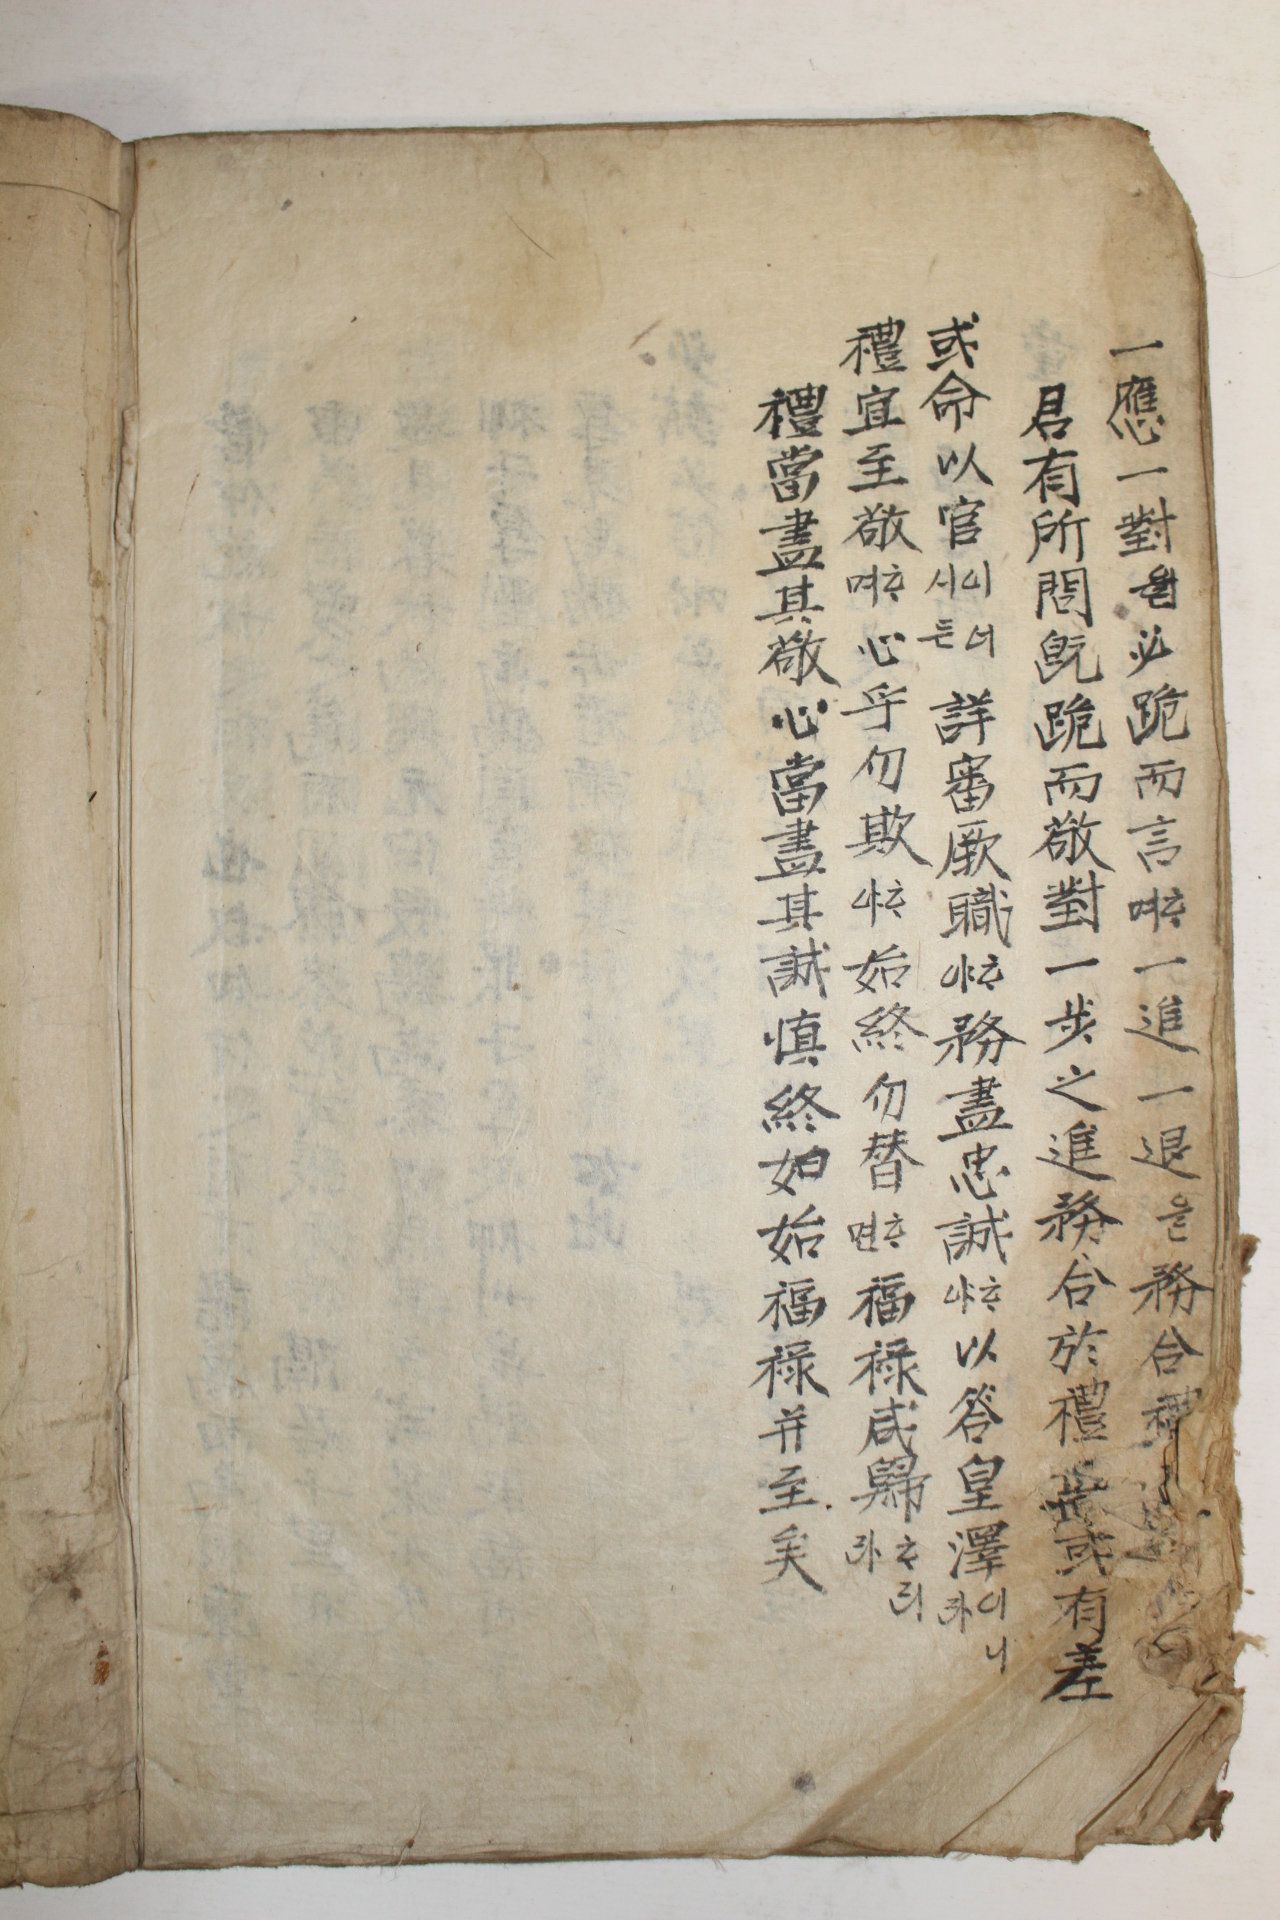 一應一對을必跪而言며一進一退을務合禮
君有所問旣跪而敬對一步之進務合於禮或有差
或命以官시니詳審厥職하며務盡忠誠하야以答皇澤이니라
禮宜至敬며心乎勿欺하야始終勿替면福祿咸歸하리라
禮當盡其敬心當盡其誠愼終如始福祿并至矣